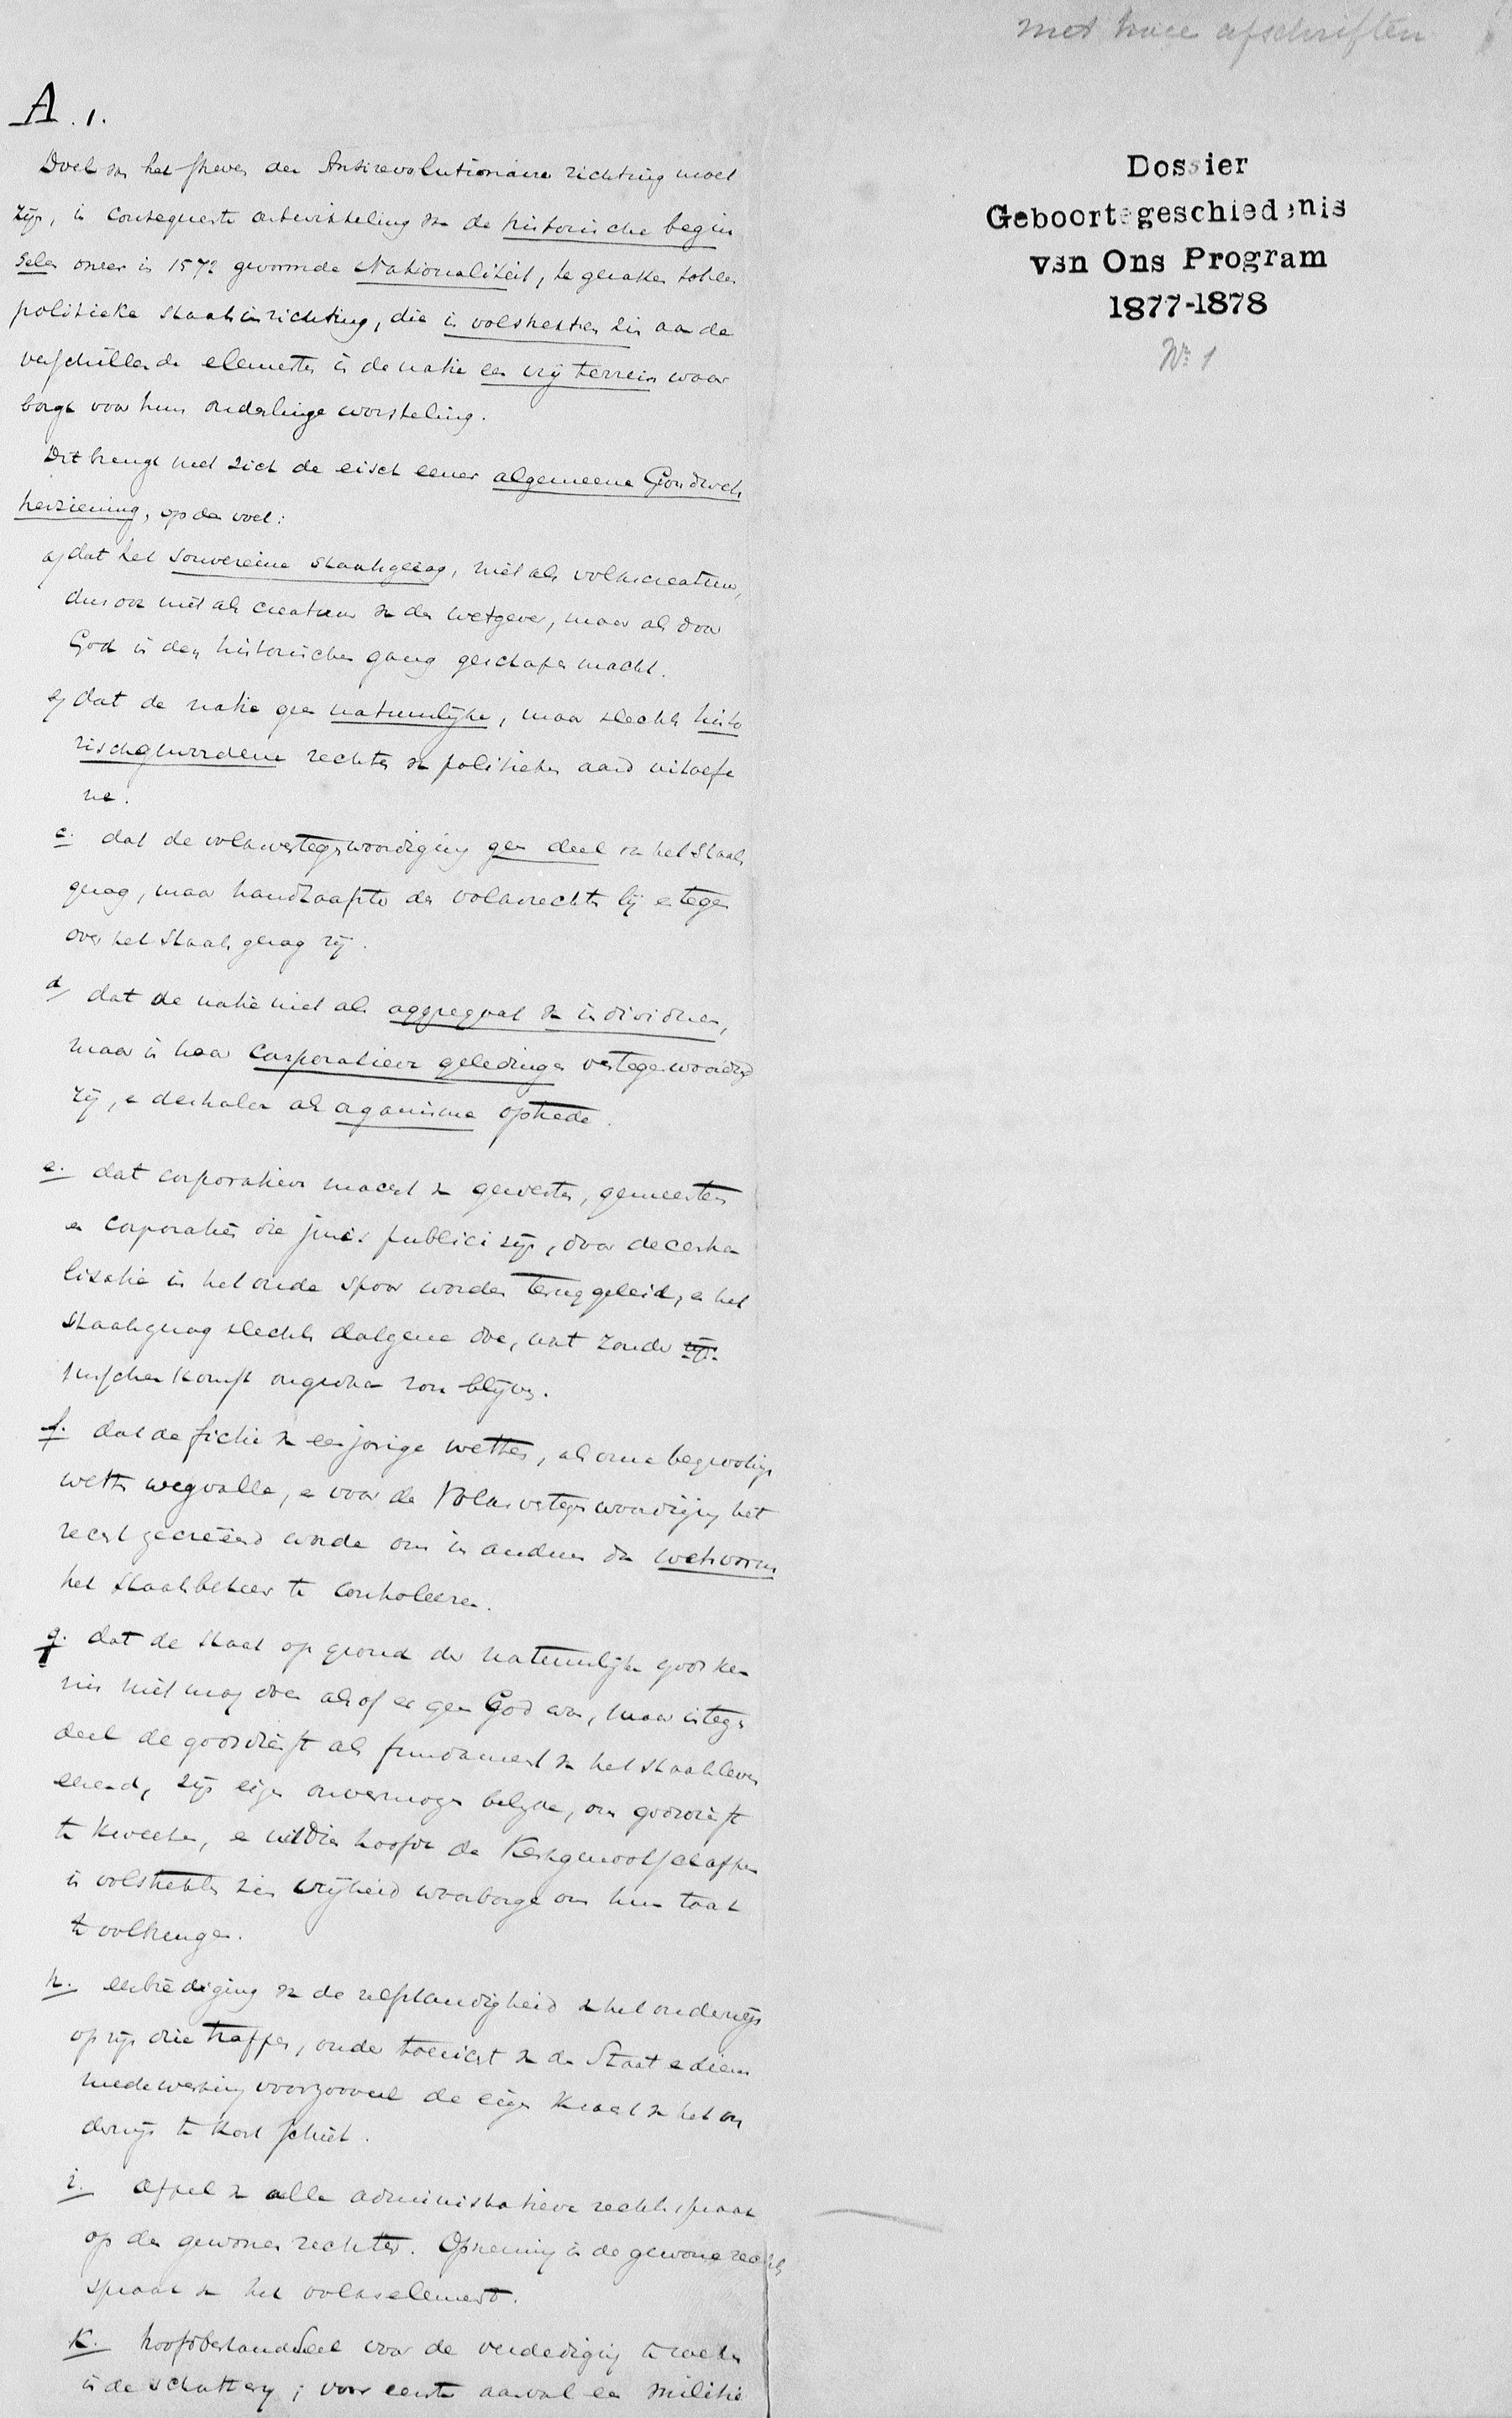 A. 1.
Doel van het streven der Antirevolutionaire richting moet
zijn, in consequente ontwikkeling van de historische begin
selen onzer in 1572 geworden Nationaliteit, te geraken tot een
politieke staatsinrichting, die in volstrekten zin aan de
verschillende elementen in de natie een vrij terrein waar
borgt voor hun onderlinge worsteling.
Dit brengt met zich de eisch eener algemeene Grondwets
herziening, op den voet:
a) dat het souvereine staatsgezag, niet als volkscreatuur,
dus ook niet als creatuur van den wetgever, maar als door
God in den historischen gang geschapen macht.
b) dat de natie geen natuurlijke, maar slechts histo
rischgewordene rechten van politieken aard uitoefe
ne.
c. dat de volksvertegenwoordiging geen deel van het Staats
gezag, maar handhaafster der volksrechten bij en tegen
over het Staatsgezag zij.
d) dat de natie niet als aggregaat van individuen,
maar in haar corporatieve geledingen vertegenwoordigd
zij, en derhalve als organisme optrede.
e. dat corporatieve macht van gewesten, gemeenten
en corporatiën die juris publici zijn, door decentra
lisatie in het oude spoor worden teruggeleid, en het
staatsgezag slechts datgene doe, wat zonder zijn
tusschenkomst ongedaan zou blijven.
f. dat de fictie van eenjarige wetten, als onze begrootings
wetten wegvalle, en voor de Volksvertegenwoordiging het
recht gecreëerd worde om in anderen dan wetsvorm
het staatsbeheer te controleeren.
g. dat de staat op grond der natuurlijke godsken
nis niet mag doen alsof er geen God ware, maar integen
deel de godsvrucht als fundament van het staatsleven
eerend, zijn eigen onvermogen belijde, om godsvrucht
te kweeken, en uit dien hoofde de Kerkgenootschappen
in volstrekten zin vrijheid waarborge om hun taak
te volbrengen.
h. eerbiediging van de zelfstandigheid van het onderwijs
op zijn drie trappen, onder toezicht van den Staat en diens
medewerking voorzooveel de eigen kracht van het on
derwijs te kort schiet.
i. Appel van alle administratieve rechtspraak
op den gewonen rechter. Opneming in de gewone rechts
spraak van het volkselement.
k. hoofdbestanddeel voor de verdediging te zoeken
in de schutterij; voor eersten aanval een militie
met twee afschriften
Dossier
Geboortegeschiedenis
van Ons Program
1877-1878
No 1